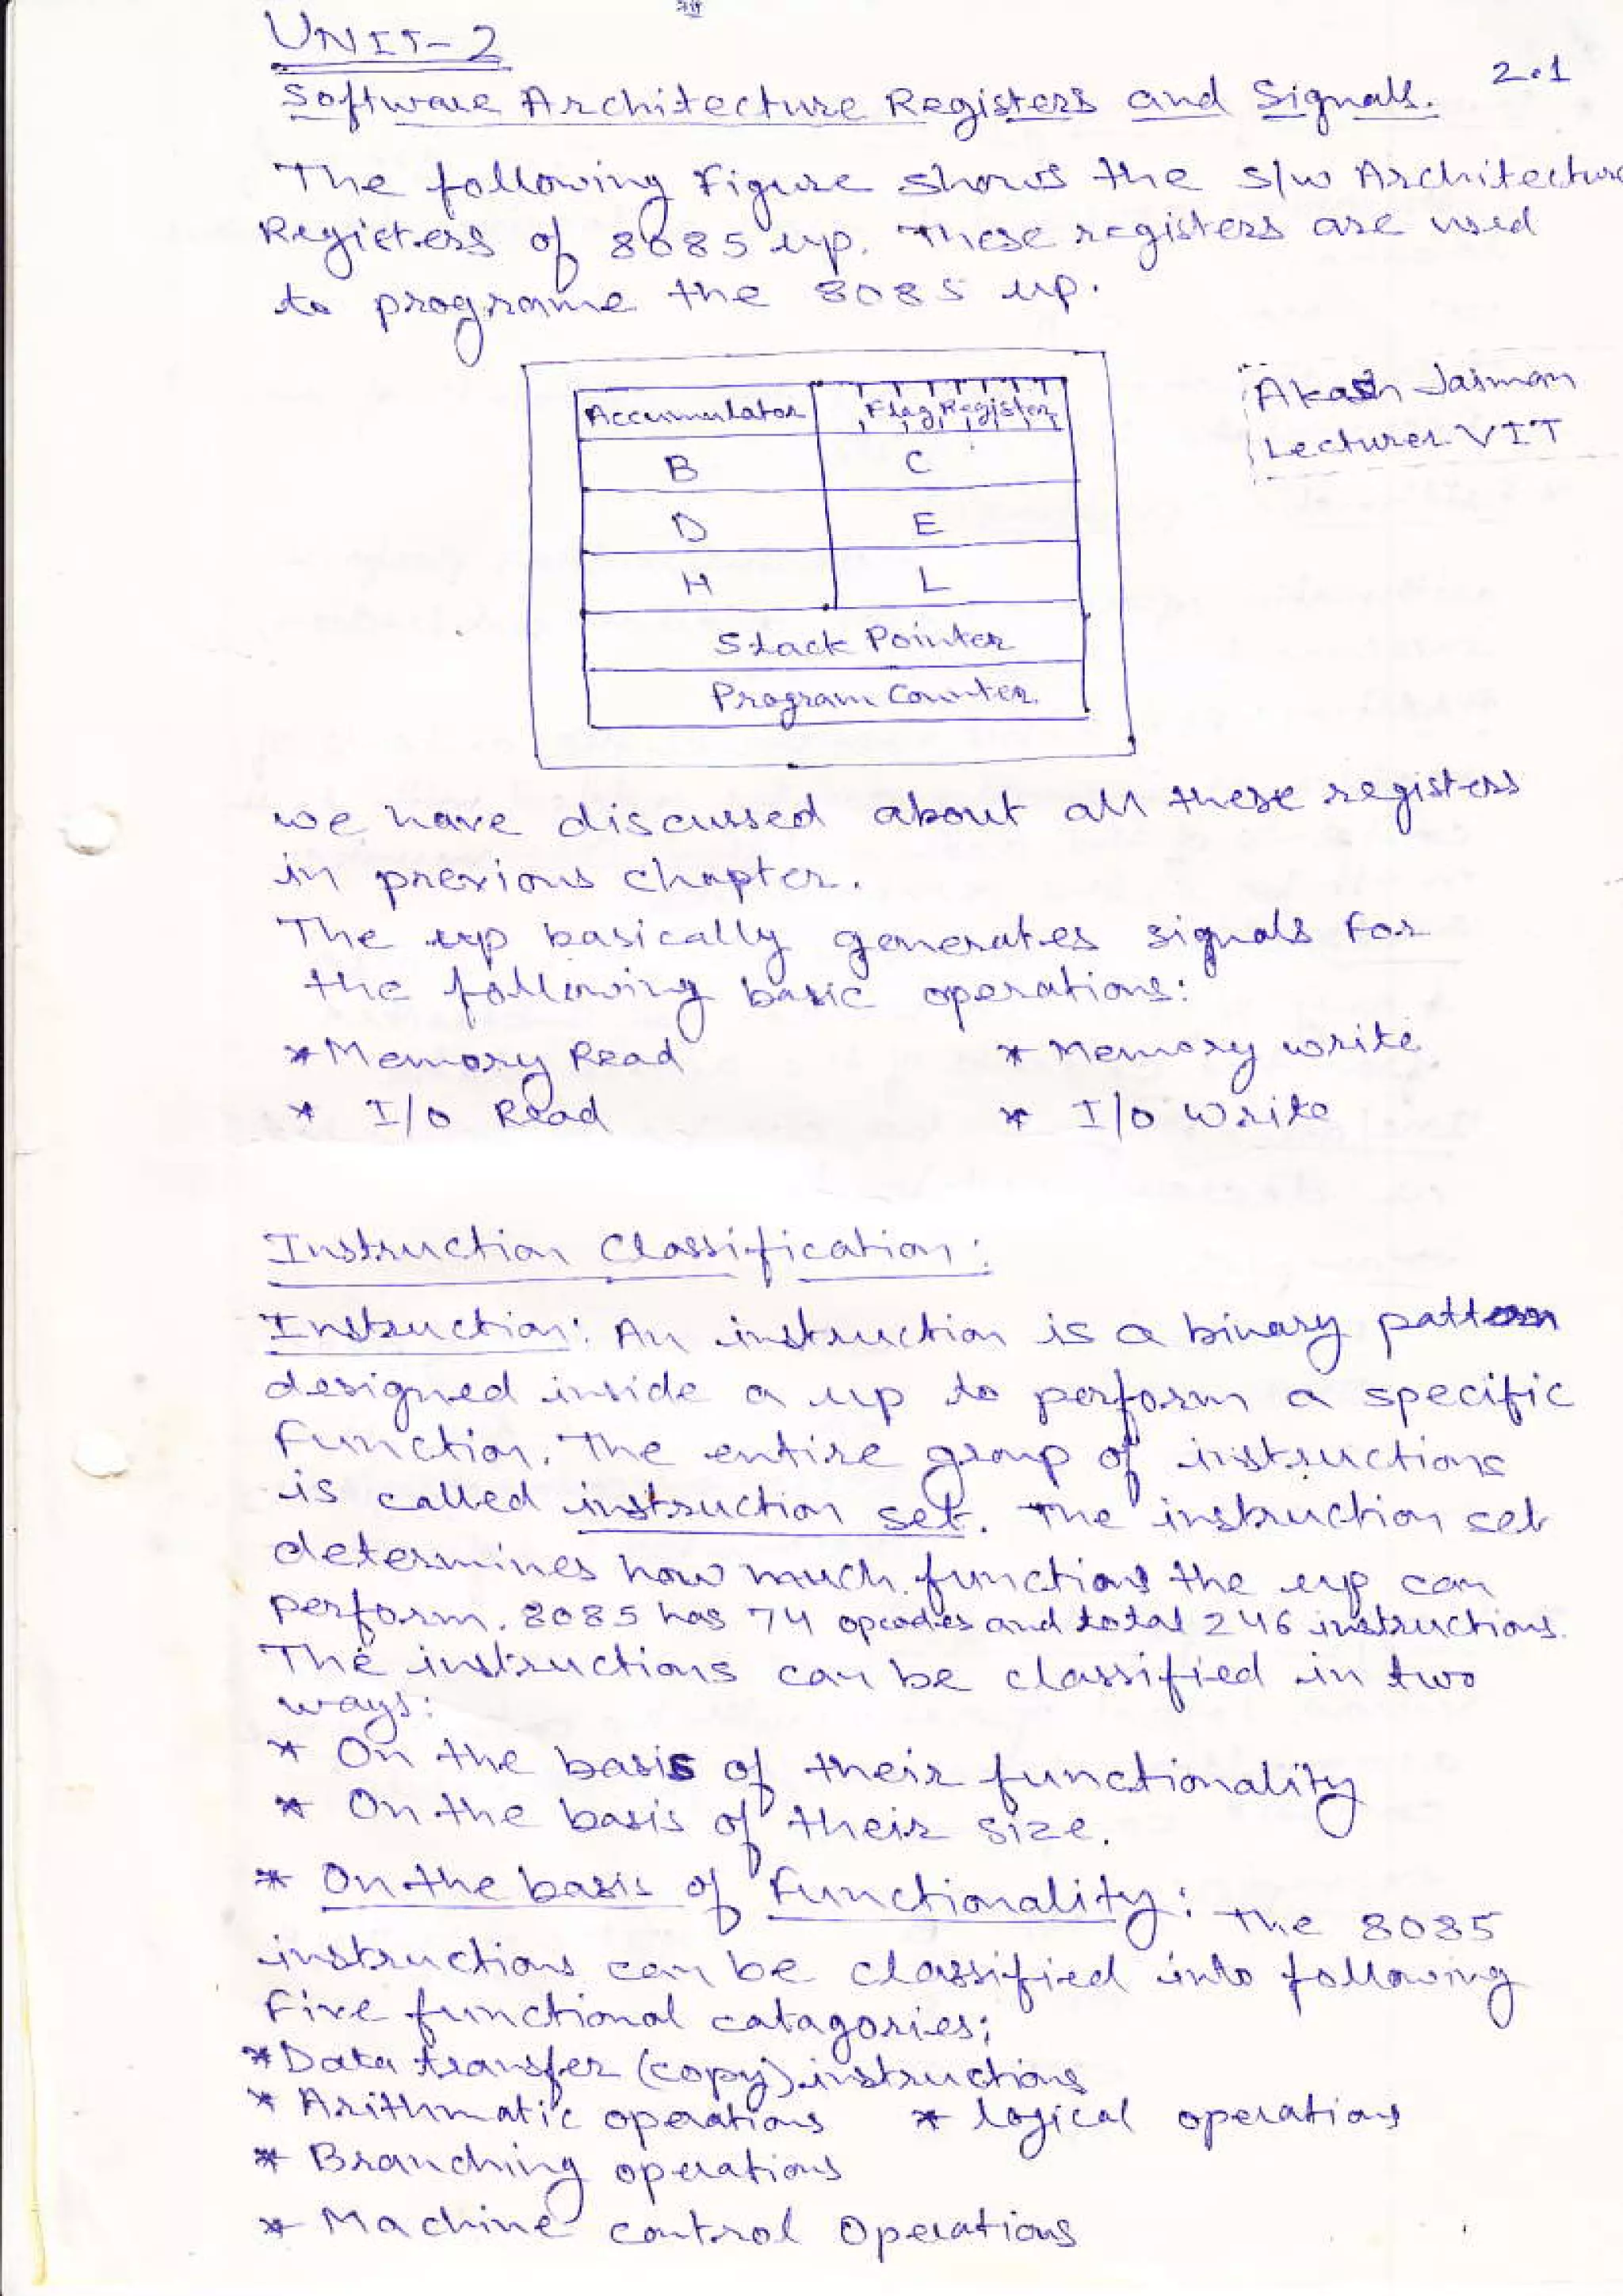 UNIT-2
2.1
Software Architecture Registers and Signals.
The following Figure shows the s/w Architecture
Registers of 8085 up. These registers are used
to programe the 8085 up.
Akash Jaiman
Lecturer VIT
Accumulator Flag Register
B C
D E
H L
Stack Pointer
Program Counter
we have discussed about all these registers
in previous chapter.
The up basically generates signals for
the following basic operations:
*Memory Read * Memory write
* I/O Read * I/O Write
Instruction Classification:
Instruction: An instruction is a binary pattern
designed inside a up to perform a specific
Function. The entire group of instructions
is called instruction set. The instruction set
determines how much functions the up can
perform. 8085 has 74 opcodes and total 246 instructions.
The instructions can be classified in two
ways:
* On the basis of their functionality
* On the basis of their size.
* On the basis of Functionality: The 8085
instructions can be classified into following
Five functional catagories;
*Data transfer (copy) instructions
* Arithmatic operations * logical operations
* Branching operations
* Machine control Operations